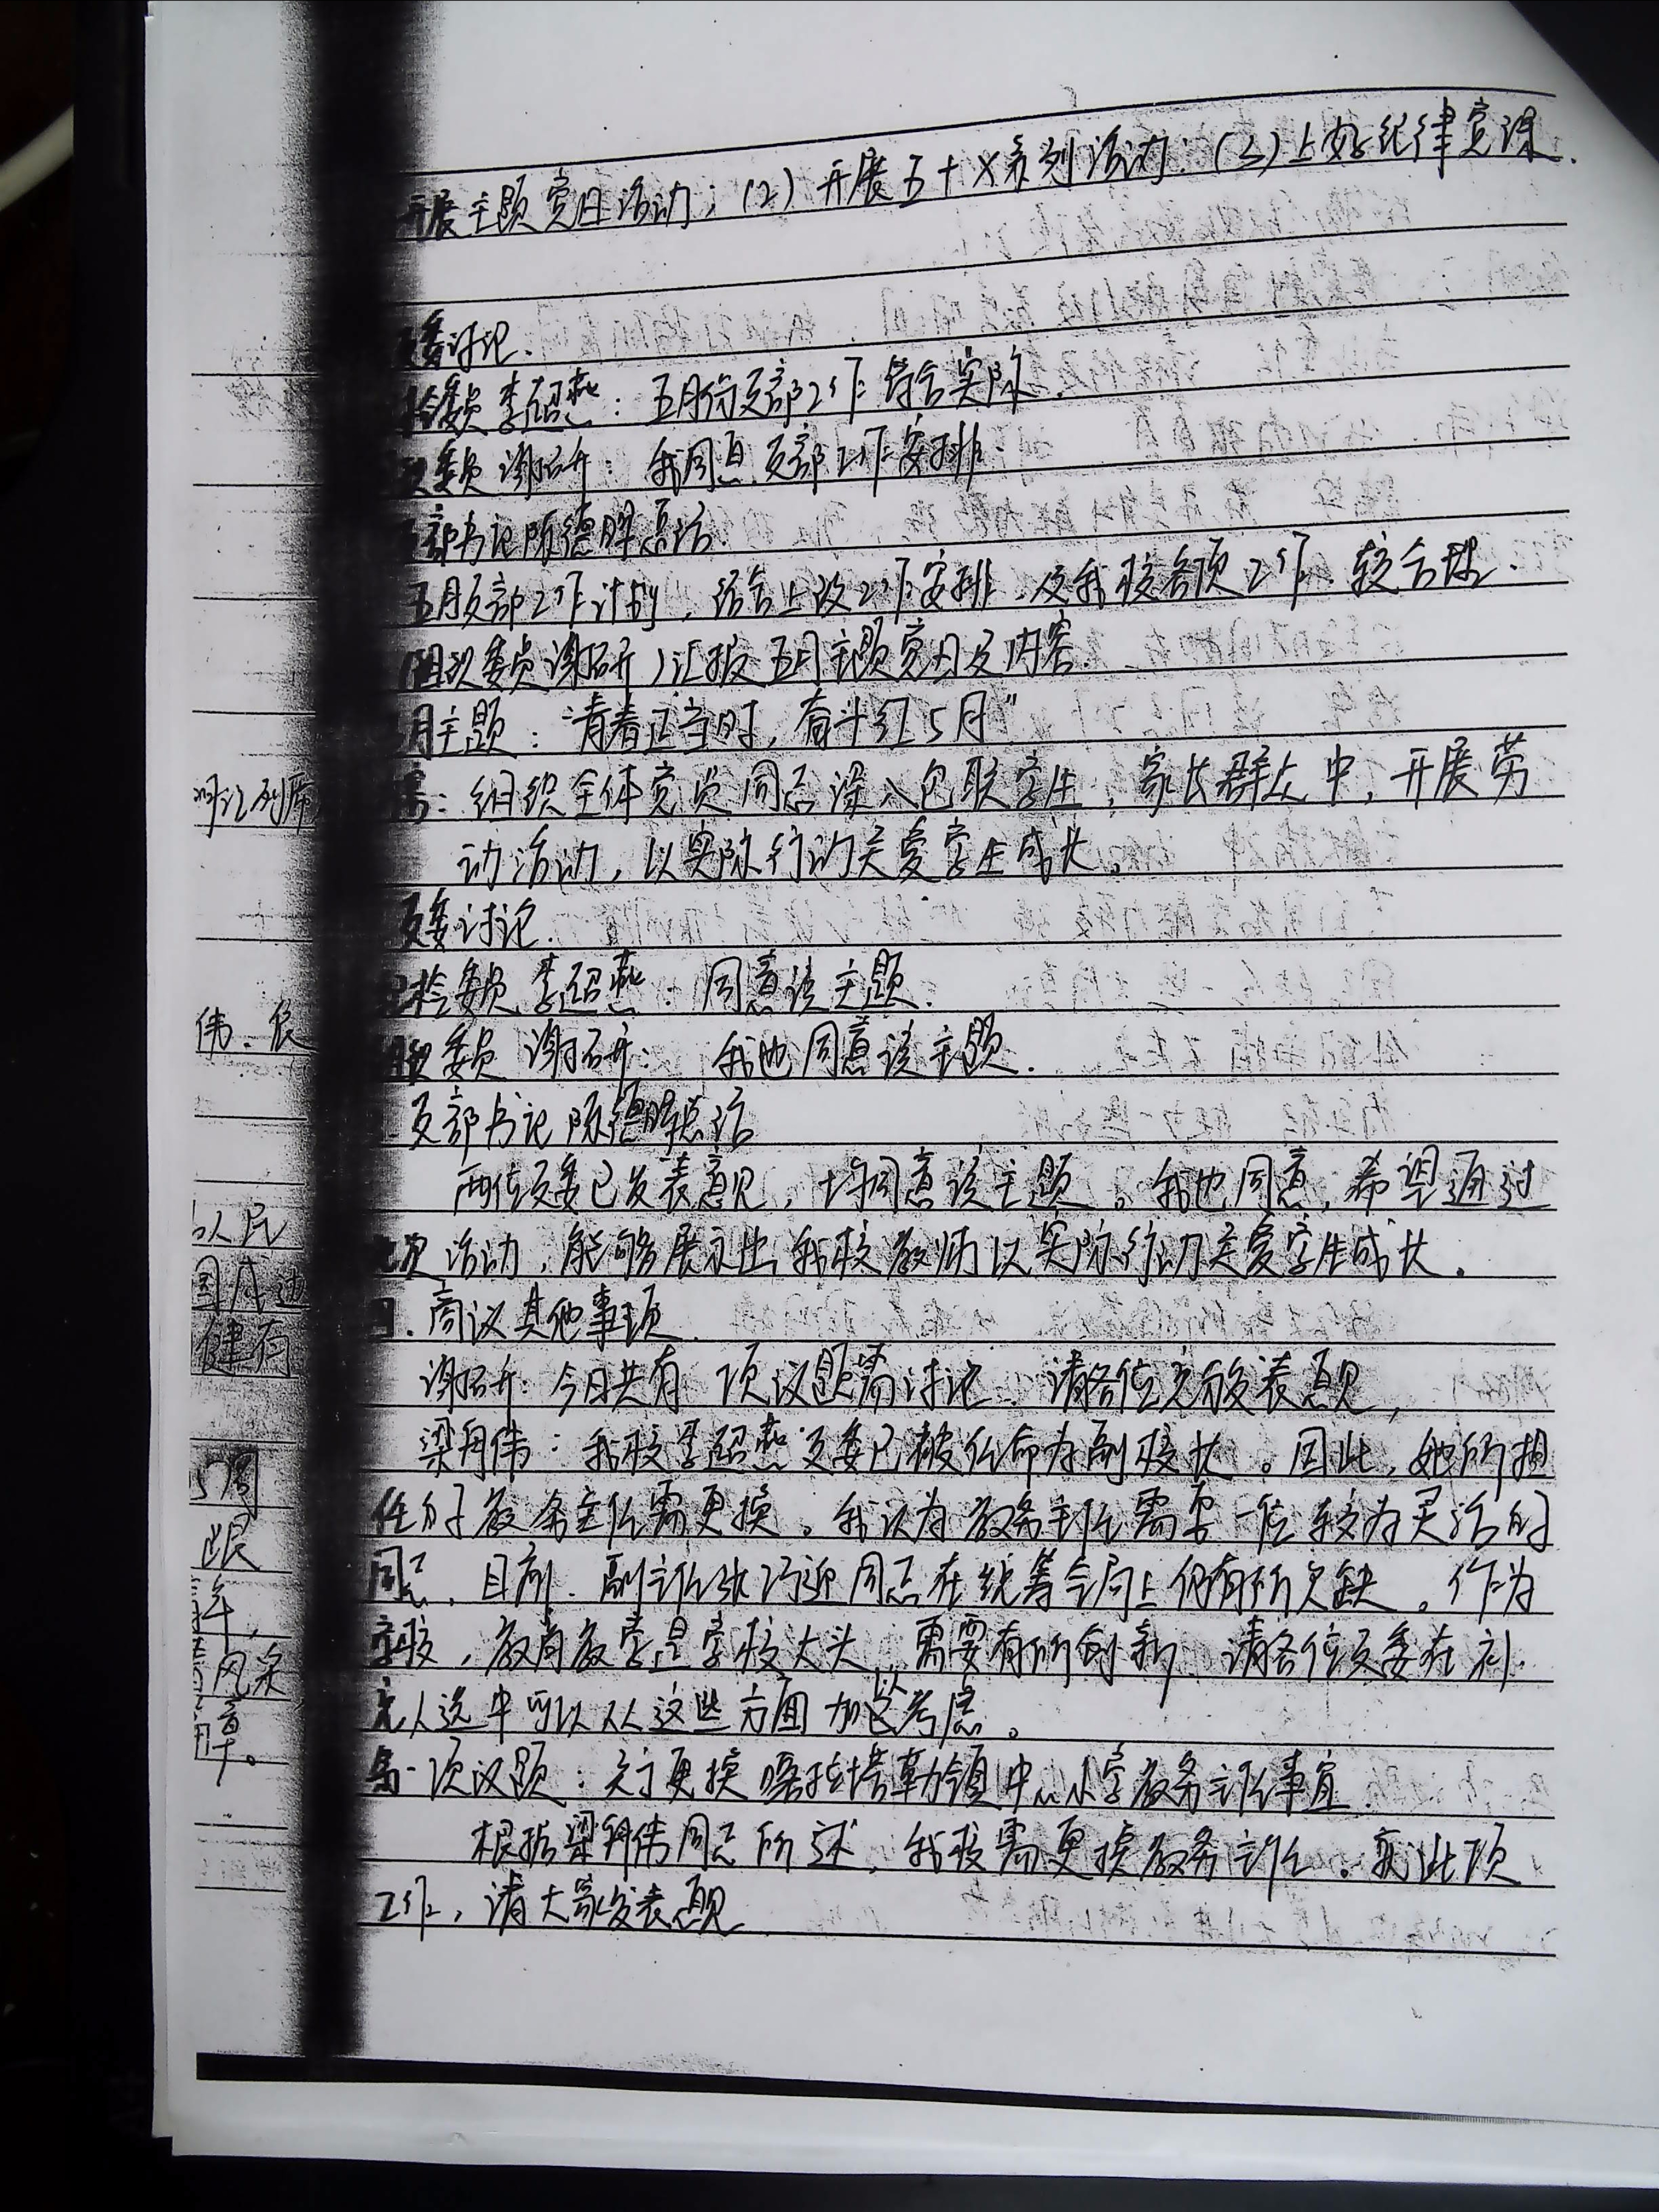 开展主题党日活动；(2)开展五十X系列活动；(3)上好纪律党课.
支委讨论.
纪检委员 李昭燕：五月份支部工作符合实际.
组织委员 谢研：我同意支部工作安排.
支部书记陈德胜总结.
五月支部工作计划，结合上级工作安排，及我校各项工作，较合理.
(组织委员谢研)汇报五月主题党日及内容.
五月主题："青春正当时，奋斗红5月"
内容：组织全体党员同志深入包联学生，家长群众中，开展劳
动活动，以实际行动关爱学生成长。
支委讨论.
纪检委员 李昭燕：同意该主题.
组织委员 谢研： 我也同意该主题.
支部书记 陈德胜总结
两位支委已发表意见，均同意该主题。我也同意，希望通过
此次活动，能够展示出我校教师以实际行动关爱学生成长。
四.商议其他事项.
谢研：今日共有 项议题需讨论，请各位充分发表意见，
梁丹伟：我校李昭燕支委已被任命为副校长。因此，她所担
任的教务主任需更换。我认为教务主任需要一位较为灵活的
同志，目前，副主任张巧迎同志在统筹全局上仍有所欠缺。作为
学校，教育教学是学校大头，需要有所创新，请各位支委在补
充人选中可以从这些方面加以考虑。
第一项议题：关于更换嘎拉塔勒镇中心小学教务主任事宜.
根据梁丹伟同志所述，我校需更换教务主任。就此项
工作，请大家发表意见
列席
伟、
人民
国
健石
5周
年，
风采
章。